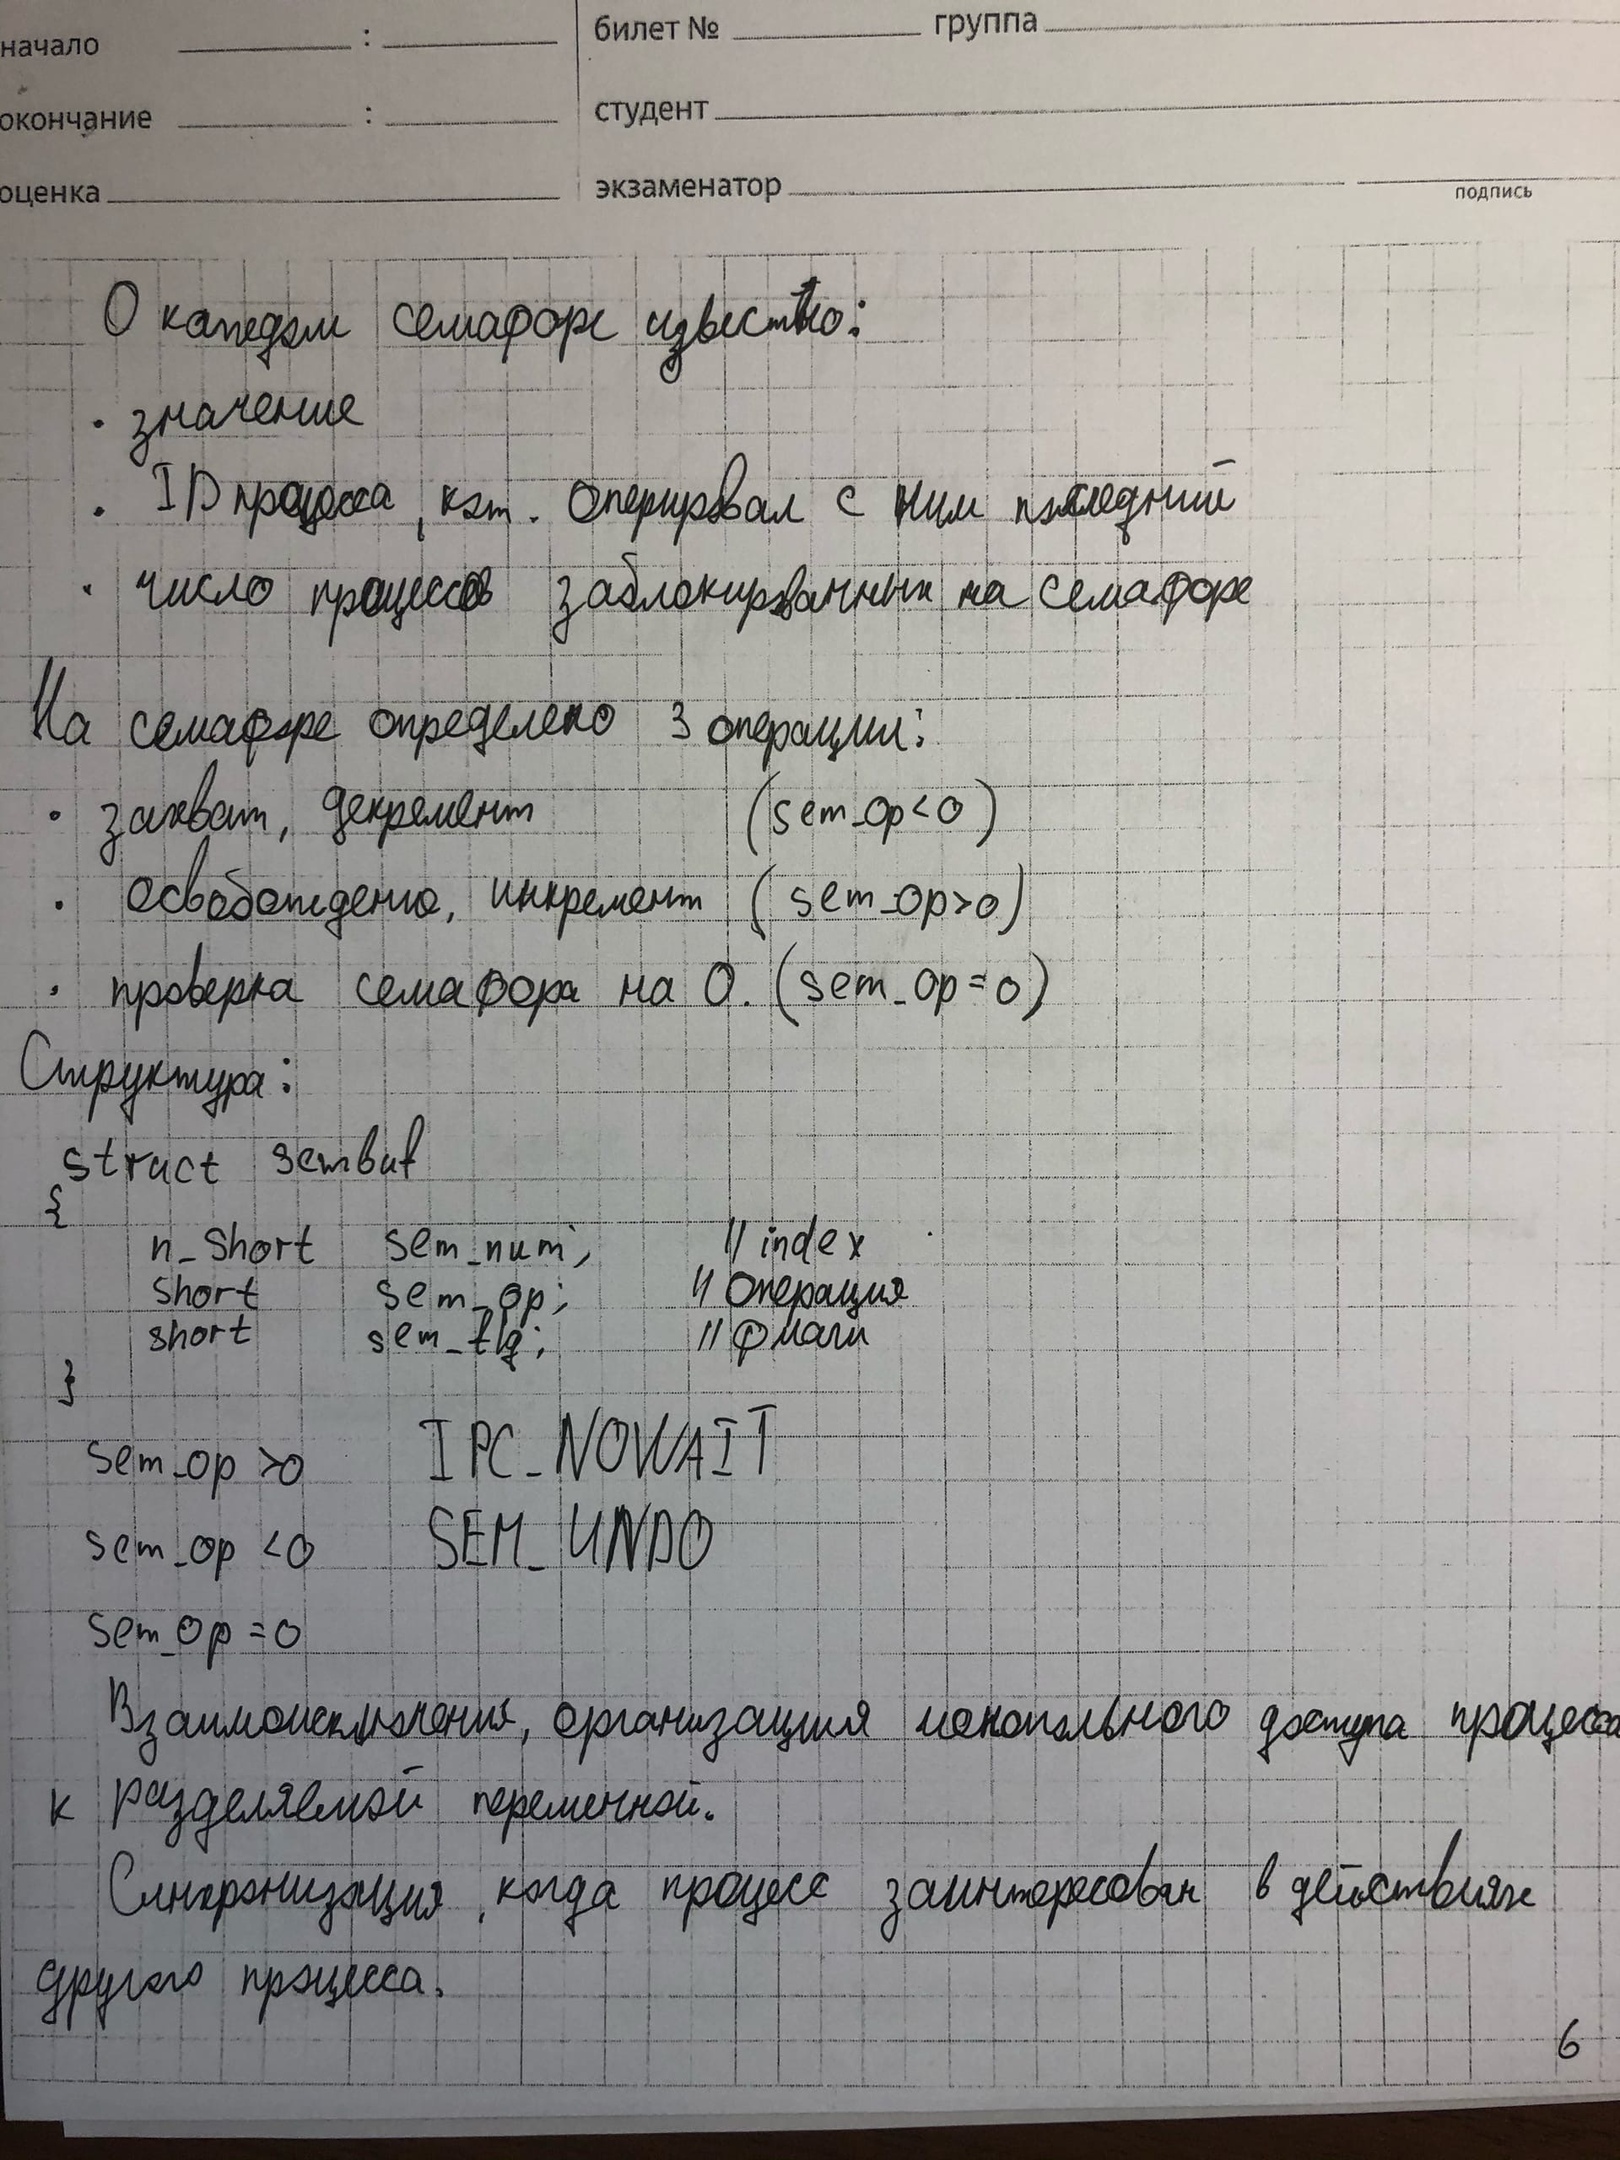 начало ____ : ____ билет № ____ группа ____
окончание ____ : ____ студент ____
оценка ____ экзаменатор ____
подпись
О каждом семафоре известно:
· значение
· ID процесса, кот. оперировал с ним последний
· число процессов заблокированных на семафоре
На семафоре определено 3 операции:
· захват, декремент (sem_op<0)
· освобождение, инкремент (sem_op>0)
· проверка семафора на 0. (sem_op=0)
Структура:
struct sembuf
{
n_short sem_num; // index
short sem_op; // операция
short sem_flg; // флаги
}
sem_op >0 IPC_NOWAIT
sem_op <0 SEM_UNDO
sem_op =0
Взаимоисключения, организация монопольного доступа процесса
к разделяемой переменной.
Синхронизация, когда процесс заинтересован в действиях
другого процесса.
6